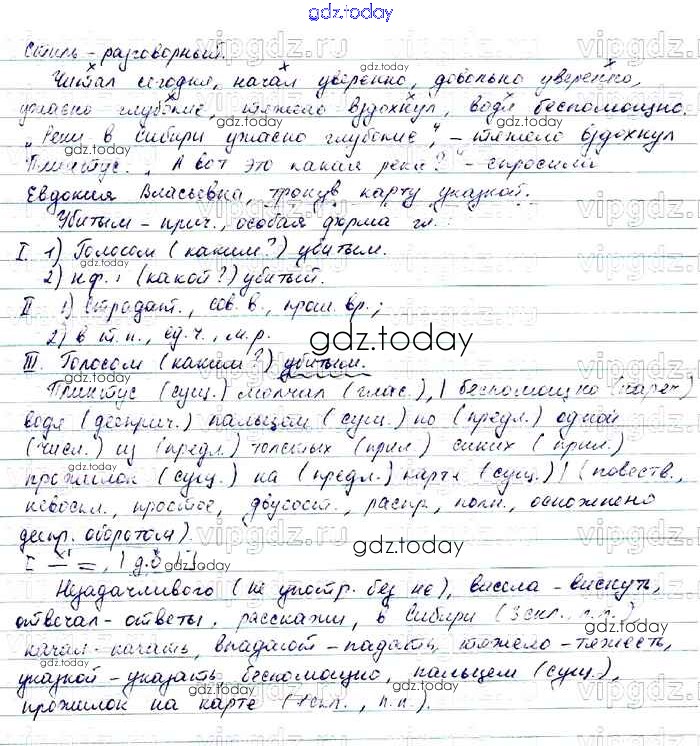 gdz.today
Стиль – разговорный.
Читал сегодня, начал уверенно, довольно уверенно,
ужасно глубокие, тяжело вздохнул, водя беспомощно.
„Реки в Сибири ужасно глубокие", – тяжело вздохнул
Плинтус. „А вот это какая река?" – спросила
Евдокия Власьевна, тронув карту указкой.
Убитым – прич., особая форма гл.
I. 1) Голосом (каким?) убитым.
2) н.ф.: (какой?) убитый.
II 1) страдат., сов. в., прош. вр.;
2) в т.п., ед.ч., м.р.
III. Голосом (каким?) убитым.
Плинтус (сущ.) молчал (глаг.), | беспомощно (нареч.)
водя (дееприч.) пальцем (сущ.) по (предл.) одной
(числ.) из (предл.) толстых (прил.) синих (прил.)
прожилок (сущ.) на (предл.) карте (сущ.) | (повеств.,
невоскл., простое, двусост., распр., полн., осложнено
деепр. оборотом).
Неудачливого (не употр. без не), висела – виснуть,
отвечал – ответы, расскажи, в Сибири (3 скл., п.п.)
качал – качать, впадают – падать, тяжело – тяжесть,
указкой – указать, беспомощно, пальцем (сущ.),
прожилок на карте (1 скл., п.п.).
gdz.today
gdz.today
gdz.today
gdz.today
gdz.today
gdz.today
gdz.today
gdz.today
gdz.today
gdz.today
gdz.today
gdz.today
gdz.today